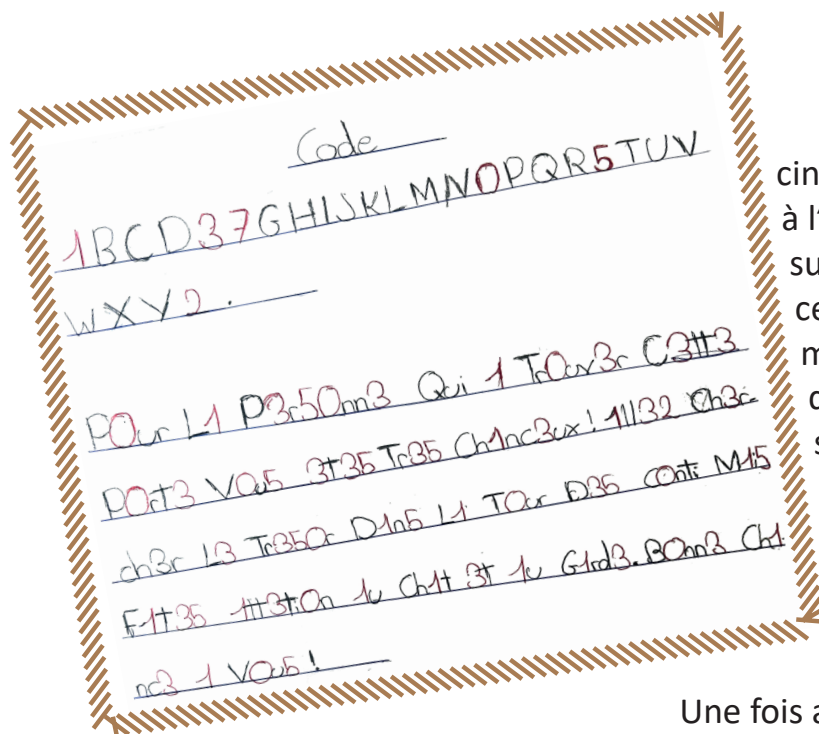 Code
1BCD37GHIJKLMN0PQR5TUV
WXY2.
P0ur L1 P3r50nn3 Qui 1 Tr0uv3r C3tt3
P0rt3 V0u5 3t35 Tr35 Ch1nc3ux! 1ll32 Ch3r-
ch3r L3 Tr350r D1n5 L1 T0ur D35 C0nti M1i5
F1t35 1tt3ti0n 1u Ch1t 3t 1u G1rd3. B0nn3 Ch1-
nc3 1 V0u5!
cin
à l'
su
ce
m
Une fois a